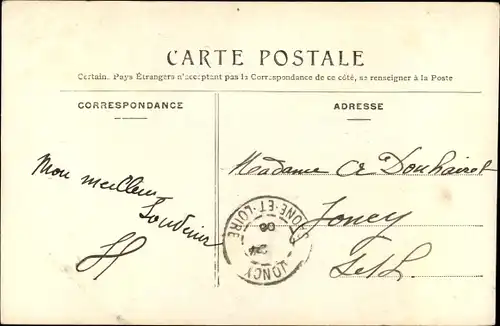 CARTE POSTALE
Certain. Pays Étrangers n'acceptant pas la Correspondance de ce côté, se renseigner à la Poste
CORRESPONDANCE
ADRESSE
Mon meilleur
Souvenir
Madame
Joncy
S et L.
JONCY
SAONE-ET-LOIRE
24
06